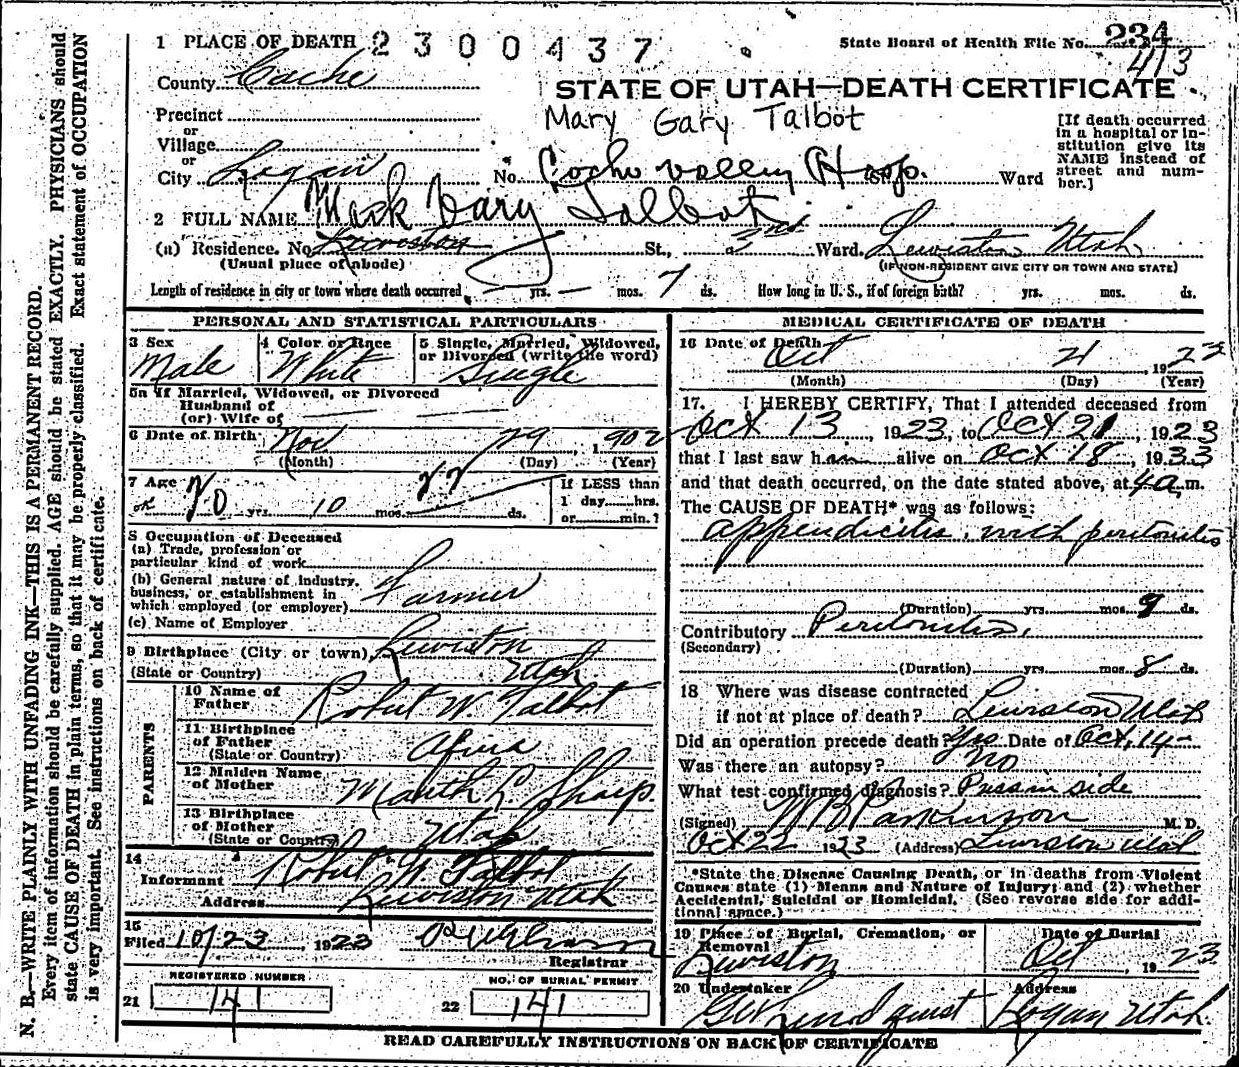 1 PLACE OF DEATH 2300437
State Board of Health File No. 234
413
County Cache
STATE OF UTAH—DEATH CERTIFICATE
Precinct
or
Village
or
City Logan No. Cache Valley Hosp. St., Ward
Mary Gary Talbot
[If death occurred in a hospital or institution give its NAME instead of street and number.]
2 FULL NAME Mark Vary Talbot
(a) Residence. No. Lewiston St., 2nd Ward. Lewiston Utah
(Usual place of abode) (IF NON-RESIDENT GIVE CITY OR TOWN AND STATE)
Length of residence in city or town where death occurred — yrs. — mos. 7 ds. How long in U. S., if of foreign birth? yrs. mos. ds.
PERSONAL AND STATISTICAL PARTICULARS
3 Sex Male
4 Color or Race White
5 Single, Married, Widowed, or Divorced (write the word) Single
5a If Married, Widowed, or Divorced
Husband of
(or) Wife of
6 Date of Birth Nov 29, 1902
(Month) (Day) (Year)
7 Age 20 yrs. 10 mos. 27 ds.
If LESS than
1 day hrs.
or min.?
8 Occupation of Deceased
(a) Trade, profession or
particular kind of work
(b) General nature of industry,
business, or establishment in
which employed (or employer) Farmer
(c) Name of Employer
9 Birthplace (City or town) Lewiston
(State or Country) Utah
PARENTS
10 Name of
Father Robert W. Talbot
11 Birthplace
of Father
(State or Country) Africa
12 Maiden Name
of Mother L. Sharp.
13 Birthplace
of Mother
(State or Country) Utah
14
Informant Robert W Talbot
Address Lewiston Utah
15
Filed 10/23 1923
Registrar
REGISTERED NUMBER
21 141
NO. OF BURIAL PERMIT
22 141
MEDICAL CERTIFICATE OF DEATH
16 Date of Death Oct 21, 1923
(Month) (Day) (Year)
17. I HEREBY CERTIFY, That I attended deceased from
Oct 13, 1923, to Oct 21, 1923
that I last saw him alive on Oct 18, 1933
and that death occurred, on the date stated above, at 4 a.m.
The CAUSE OF DEATH* was as follows:
appendicitis, with peritonitis
(Duration) yrs. mos. 9 ds.
Contributory Peritonitis,
(Secondary)
(Duration) yrs. mos. 8 ds.
18 Where was disease contracted
if not at place of death? Lewiston Utah
Did an operation precede death? Yes Date of Oct, 14—
Was there an autopsy? No
What test confirmed diagnosis? Puss in side
(Signed) W B Parkinson M. D.
Oct 22 1923 (Address) Lewiston Utah
*State the Disease Causing Death, or in deaths from Violent
Causes state (1) Means and Nature of Injury; and (2) whether
Accidental, Suicidal or Homicidal. (See reverse side for addi-
tional space.)
19 Place of Burial, Cremation, or
Removal
Lewiston
Date of Burial
Oct, 1923
20 Undertaker
Lindquist
Address
Logan Utah
READ CAREFULLY INSTRUCTIONS ON BACK OF CERTIFICATE
N. B.—WRITE PLAINLY WITH UNFADING INK—THIS IS A PERMANENT RECORD.
Every item of information should be carefully supplied. AGE should be stated EXACTLY. PHYSICIANS should
state CAUSE OF DEATH in plain terms, so that it may be properly classified. Exact statement of OCCUPATION
is very important. See instructions on back of certificate.